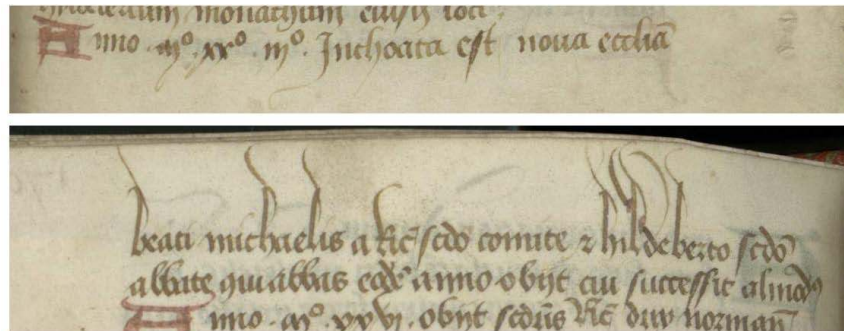 monachum eius loci
Anno · mº · xxº · iijº · Inchoata est noua ecclia
beati michaelis a Ric scdo comite ⁊ hildeberto scdo
abbate qui abbas eode anno obijt cui successit almod⁹
Anno · mº · xxvj · obijt scdus Ric dux norman